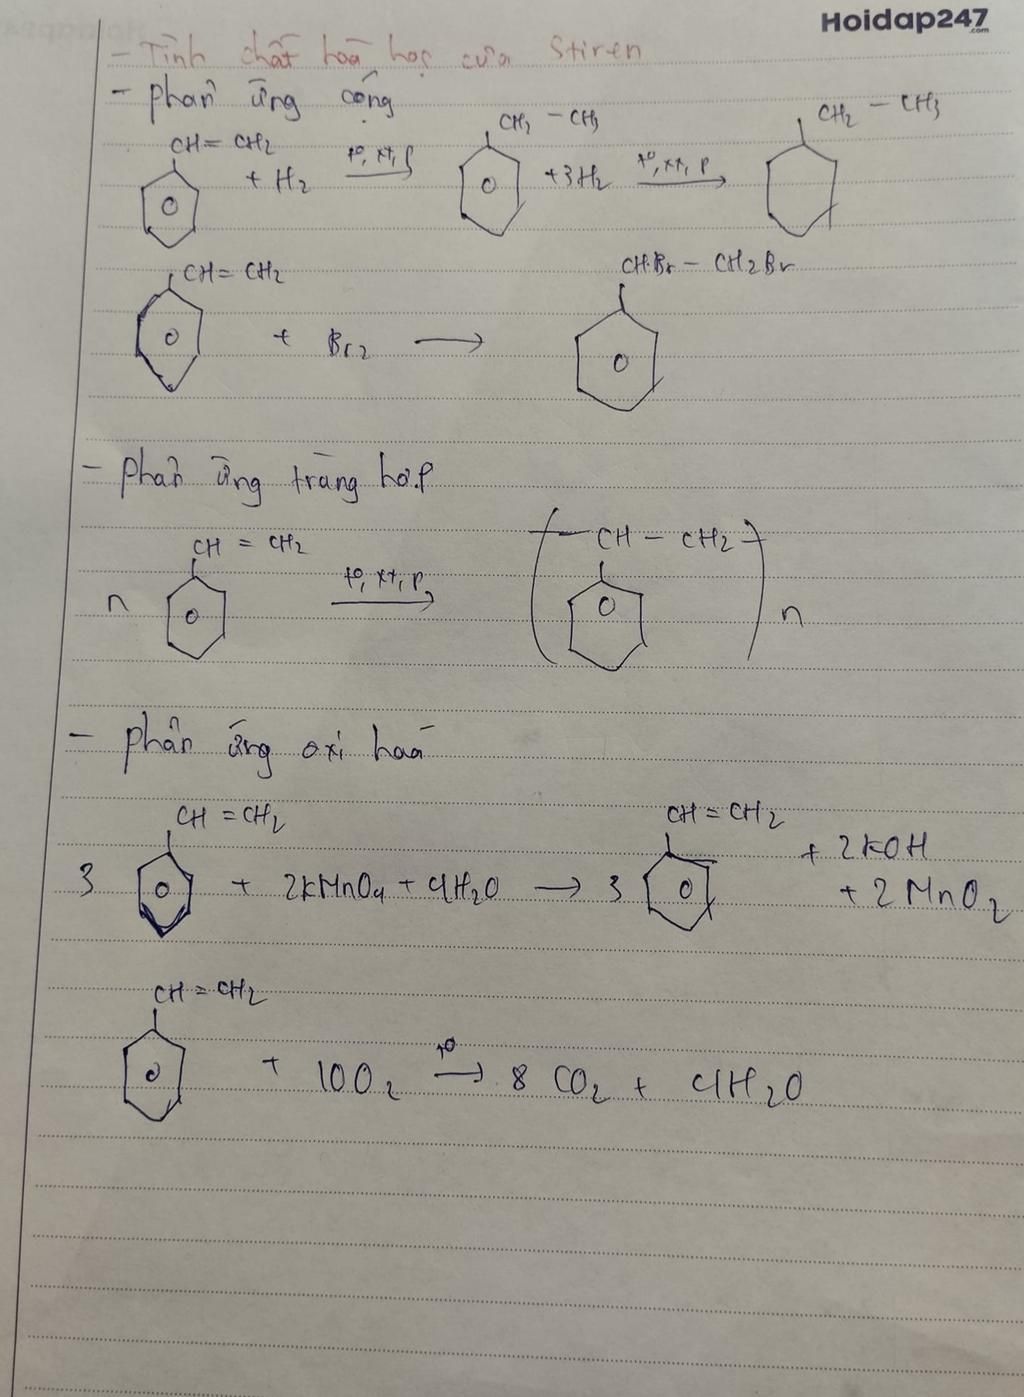 Hoidap247
.com
- Tính chất hoá học của Stiren
- phản ứng cộng
CH = CH2 + H2 t°, xt, p CH2 - CH3 + 3H2 t°, xt, p CH2 - CH3
CH = CH2 + Br2 → CHBr - CH2Br
- phản ứng trùng hợp
n CH = CH2 t°, xt, p ( CH - CH2 ) n
- phản ứng oxi hoá
3 CH = CH2 + 2KMnO4 + 4H2O → 3 CH = CH2 + 2KOH
+ 2MnO2
CH = CH2 + 10O2 t° → 8CO2 + 4H2O